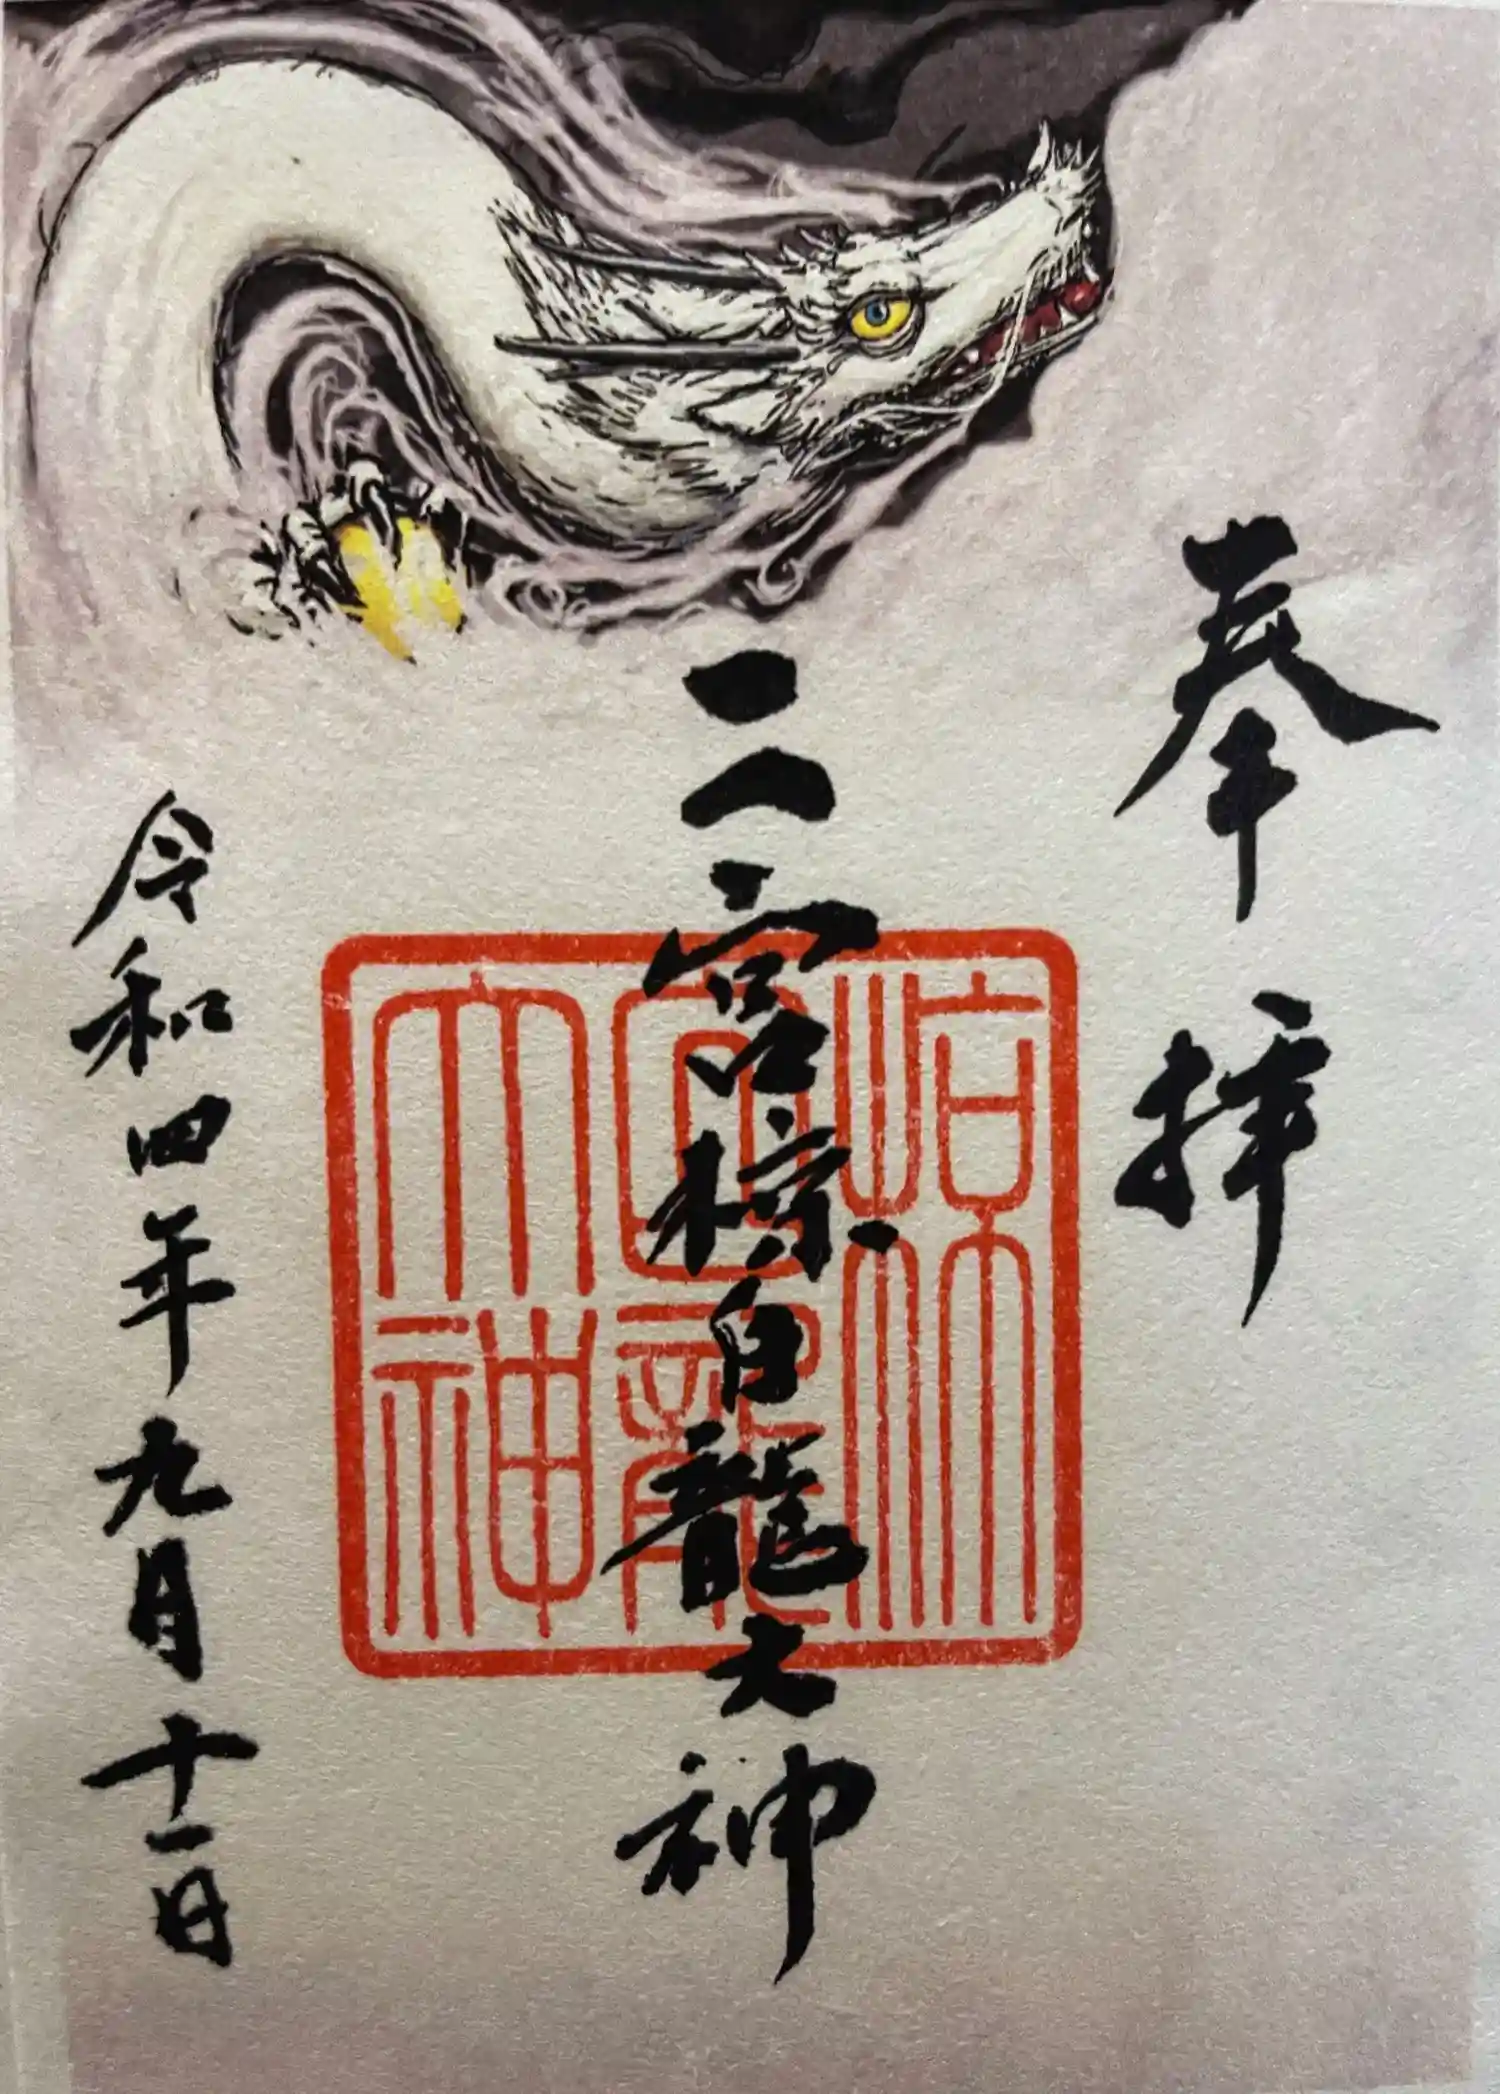 奉拝
二宮椋白龍大神
椋
白龍
大神
令和四年九月十一日